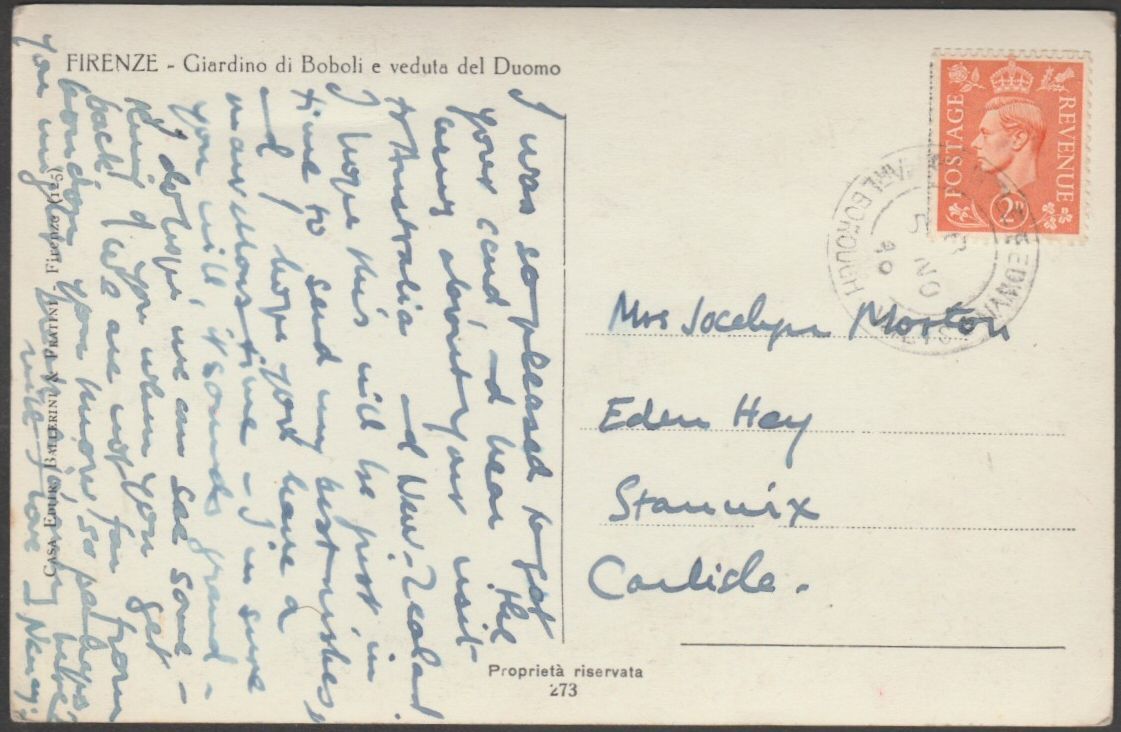 FIRENZE - Giardino di Boboli e veduta del Duomo
I was so pleased to get
your card, and hear the
any about your visit
to Australia and New-Zealand
I hope this will be just in
time to send my best wishes,
and I hope you have a
marvellous time - I'm sure
you will, it sounds grand -
I do hope we can see some -
thing of you when you get
back. We are not far from
London you know, so perhaps
you might be
with love Nancy.
CASA EDIT. BALLERINI & FRATINI - Firenze (125)
POSTAGE REVENUE
2D
BOROUGH
NO
Mrs Jocelyn Morton
Eden Hey
Stannix
Carlisle.
Proprietà riservata
273